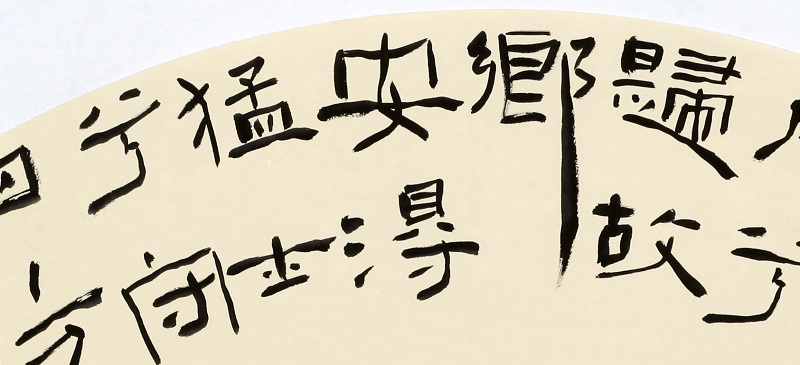 兮
歸故
鄉
安得
猛士
兮守
四方